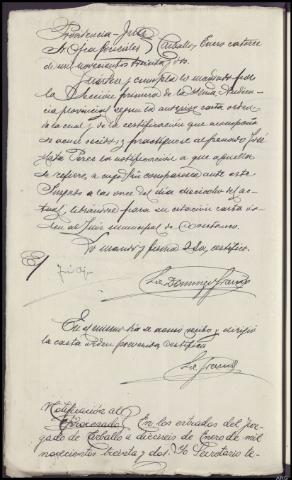 Providencia - Juez
Sr Cea Fuentes } Carballo, Enero catorce
de mil novecientos treinta y dos.
Guardese y cumplase lo mandado por
la Sección primera de la Ilma Audien-
cia provincial según la anterior carta orden
de la cual y de la certificación que acompaña
se acuse recibo; y practiquese al procesado José
Mata Perez la notificación a que aquella
se refiere, a cuyo fin comparecerá ante este
Juzgado a las once del día dieciseis del ac-
tual, librandose para su citación carta or-
den al Juez municipal de
Lo mandó y firma S Sª, certifico.
Ldo Domingo
En el mismo día se acusó recibo y dirigió
la carta orden prevenida certifico
Ldo
Notificación al
procesado } En los estrados del Juz-
gado de Carballo a dieciseis de Enero de mil
novecientos treinta y dos: Yo Secretario te-